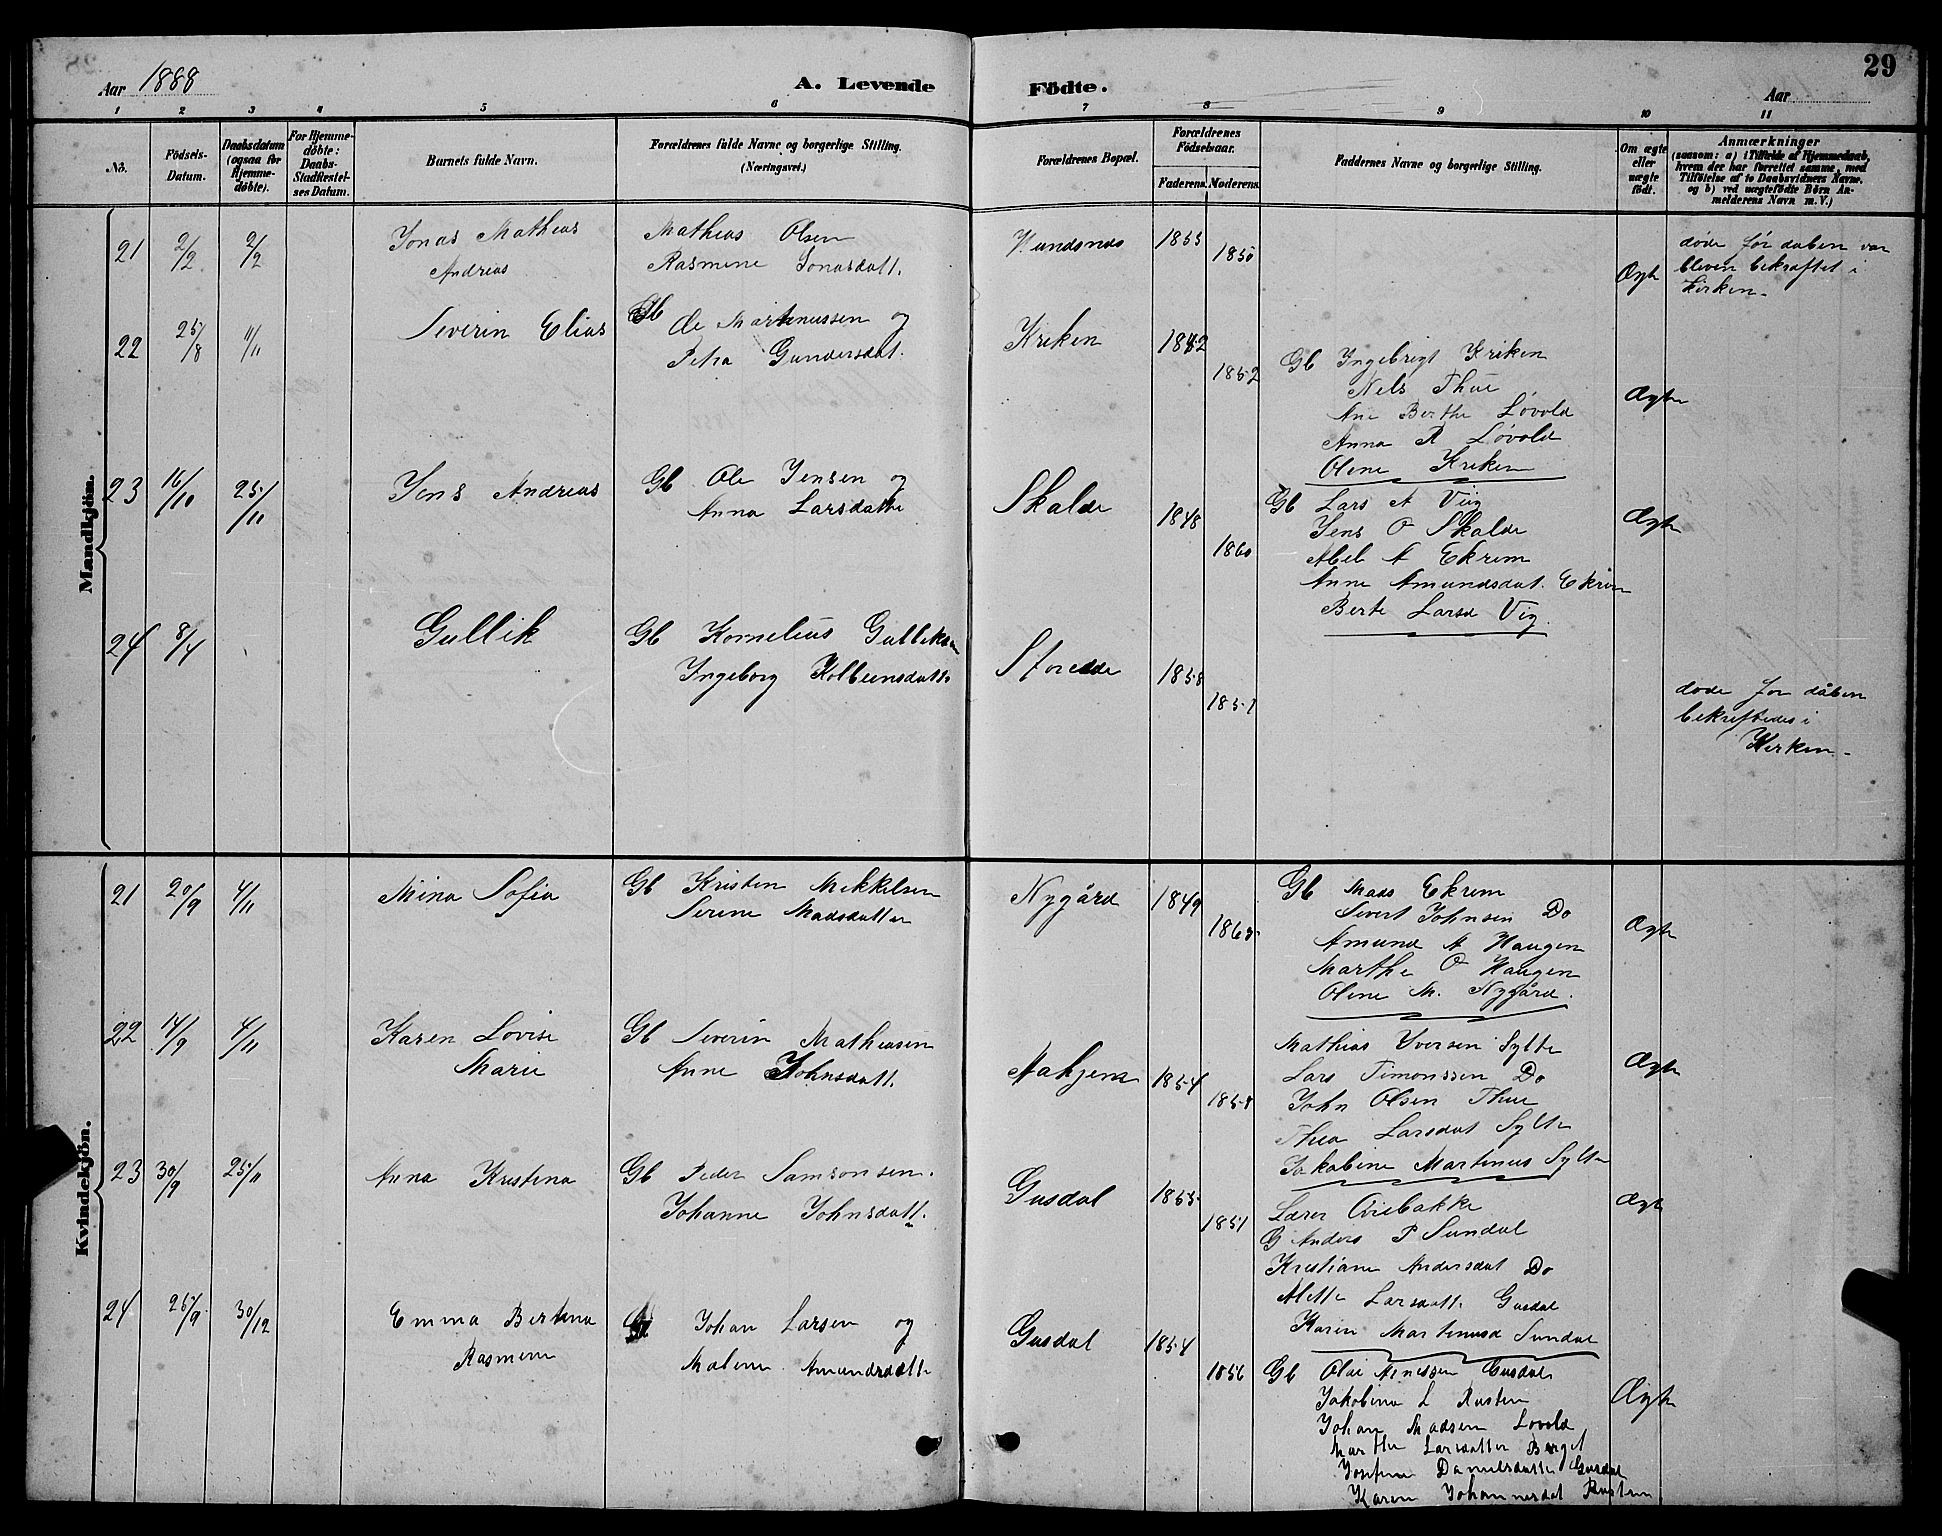 Aar 1888
A. Levende Födte.
29
Aar
1 2 3 4 5 6 7 8 9 10 11
No.
Födsels-Datum.
Daabsdatum (ogsaa for Hjemme-döbte).
For Hjemme-döbte: Daabs-Stadfæstel-ses Datum.
Barnets fulde Navn.
Forældrenes fulde Navne og borgerlige Stilling. (Næringsvei.)
Forældrenes Bopæl.
Forældrenes Födselsaar.
Faderens. Moderens.
Faddernes Navne og borgerlige Stilling.
Om ægte eller uægte födt.
Anmærkninger
(saasom: a) i Tilfælde af Hjemmedaab,
hvem der har forrettet samme, med
Tilföielse af to Daabsvidners Navne.
og b) ved uægtefödte Börn An-
melderens Navn m. V.)
Mandkjön.
21 2/2 2/2 Jonas Mathias
Andreas
Mathias Olsen
Rasmine Jonasdatt.
1850
Ægte
døde før daben var
bleven bekræftet i
Kirken.
22 25/8 11/11 Severin Elias
Gb Ole Martinussen og
Petra Gundersdat.
Kriken
1852
Gb Ingebrigt Kriken
Nels Thue
Ane Berthe Løvold
Anna R Løvold
Oline Kriken
Ægte
23 16/10 25/11 Jens Andreas
Gb Ole Jensen og
Anna Larsdatte
Skalde
1848
1860
Gb Lars A Viig
Jens O Skalde
Abel A Ekrem
Anne Amundsdat. Ekrem
Berte Larsd Vig.
Ægte
24 8/4 Gullik
Gb Kornelius Gulliksen
Ingeborg Kolbeinsdatte
1858
1857
døde før dåben
bekræftedes i
Kirken
Kvindekjön.
21 20/9 4/11 Mina Sofia
Gb Kristen Mikkelsen
Serine Madsdatter
Nygård
1849
Gb Mads Ekrem
Sivert Johnsen Do
Amund A Haugen
Marthe O Haugen
Oline M. Nygård.
Ægte
22 14/9 4/11 Karen Lovise
Marie
Gb Severin Mathiasen
Anne Johnsdatt.
1854
1858
Mathias Iversen Sylte
Lars Timonssen Do
John Olsen Thue
Thea Larsdat Sylte
Jakobine Martinus Sylte
Ægte
23 30/9 25/11 Anna Kristina
Gb Peder Samsonsen.
Johanne Johnsdatt.
Gusdal
1855
1851
Lærer Qviebakke
G Anders P Sundal
Kristiane Andersdat Do
Mette Larsdatt. Gusdal
Karen Martinusd Sundal
Ægte
24 26/9 30/12 Emma Bertina
Rasmine
Johan Larsen og
Malene Amundsdatte
Gusdal
1854
1856
Gb Olai Arnessen Gusdal
Jakobina L Rusten
Johan Madsen Lovold
Marthe Larsdatter Berget
Josefine Danielsdatte Gusdal
Karen Johannesdat Rusten
Ægte